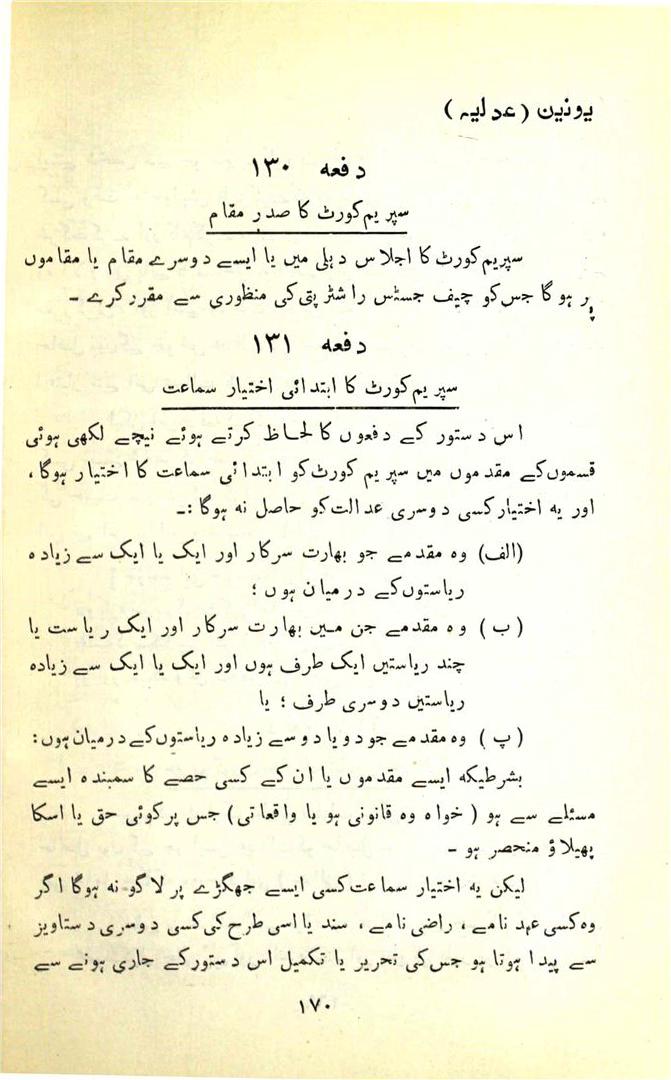 یونین (عدلیہ)
دفعہ ۱۳۰
سپریم کورٹ کا صدر مقام
سپریم کورٹ کا اجلاس دہلی میں یا ایسے دوسرے مقام یا مقاموں
پر ہوگا جس کو چیف جسٹس راشٹرپتی کی منظوری سے مقرر کرے ۔
دفعہ ۱۳۱
سپریم کورٹ کا ابتدائی اختیار سماعت
اس دستور کے دفعوں کا لحاظ کرتے ہوئے نیچے لکھی ہوئی
قسموں کے مقدموں میں سپریم کورٹ کو ابتدائی سماعت کا اختیار ہوگا،
اور یہ اختیار کسی دوسری عدالت کو حاصل نہ ہوگا :۔
(الف) وہ مقدمے جو بھارت سرکار اور ایک یا ایک سے زیادہ
ریاستوں کے درمیان ہوں ؛
(ب) وہ مقدمے جن میں بھارت سرکار اور ایک ریاست یا
چند ریاستیں ایک طرف ہوں اور ایک یا ایک سے زیادہ
ریاستیں دوسری طرف ؛ یا
(پ) وہ مقدمے جو دو یا دو سے زیادہ ریاستوں کے درمیان ہوں:
بشرطیکہ ایسے مقدموں یا ان کے کسی حصے کا سمبندہ ایسے
مسئلے سے ہو (خواہ وہ قانونی ہو یا واقعاتی) جس پر کوئی حق یا اسکا
پھیلاؤ منحصر ہو ۔
لیکن یہ اختیار سماعت کسی ایسے جھگڑے پر لاگو نہ ہوگا اگر
وہ کسی عہد نامے، راضی نامے، سند یا اسی طرح کی کسی دوسری دستاویز
سے پیدا ہوتا ہو جس کی تحریر یا تکمیل اس دستور کے جاری ہونے سے
۱۷۰